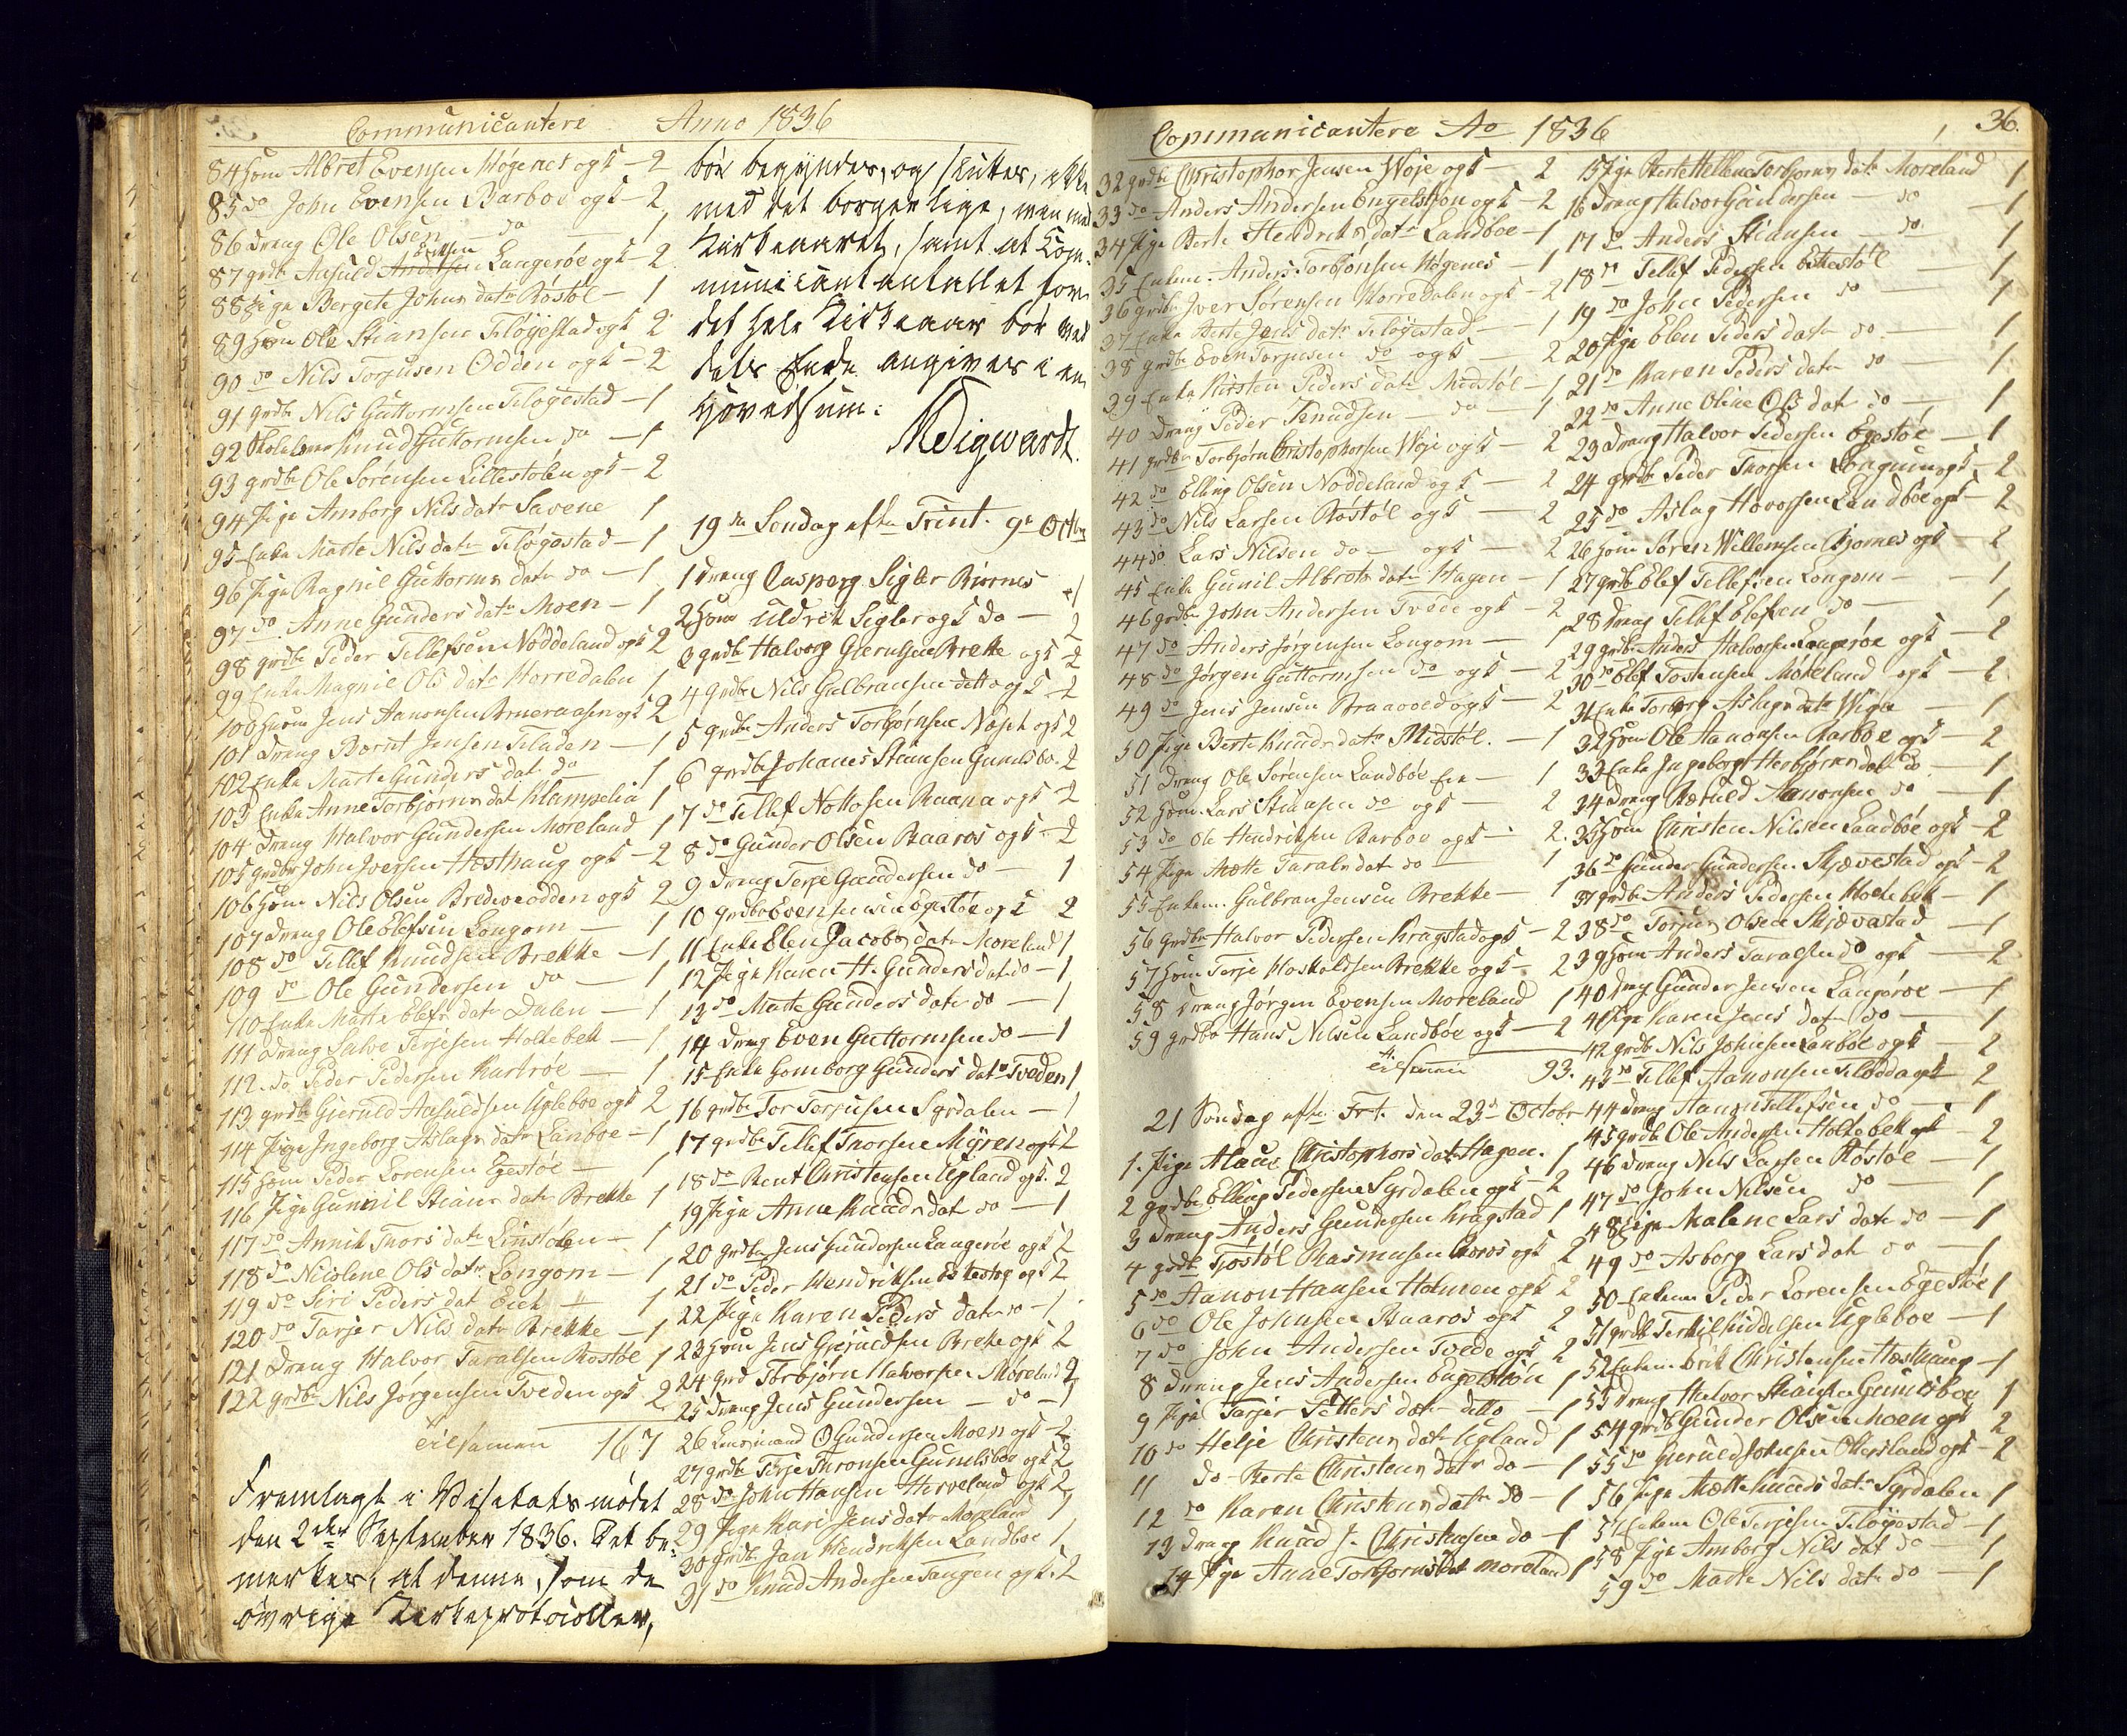 Communicantere Anno 1836
84 Hsm Albret Evensen Høgenes og K - 2
85 do John Evensen Barboe og K - 2
86 Drang Ole Olsen do - 1
87 grdbr Aasuld Eriksen Langerøe og K - 2
88 Pige Bergete Johns datr Røstøl - 1
89 Hsm Ole Stiansen Fløyestad og K 2
90 do Nils Torjusen Odden og K - 2
91 grdbr Nils Guttormsen Fløgestad - 1
92 Skolelærer Knud Guttormsen do - 1
93 grdbr Ole Sørensen Lillestølen og K - 2
94 Pige Amborg Nils datr Savene 1
95 Enke Marte Nils datr Fløgestad - 1
96 Pige Ragnil Guttorms datr do - 1
97 do Anne Gunders datr Moen - 1
98 grdbr Peder Tellefsen Nøddeland og K 2
99 Enke Magnil Ols datr Horredalen 1
100 Hsm Jens Aanonsen Arneraasen og K 2
101 Drang Bornt Jensen Fladen - 1
102 Enke Marte Gunders dat do - 1
103 Enke Anne Torbjørns dat Klampelia 1
104 Drang Halvor Gundersen Moreland 1
105 grdbr John Iversen Hæsthaug og K - 2
106 Hsm Nils Olsen Bredveodden og K 2
107 Drang Ole Elefsen Longom - 1
108 do Tellef Knudsen Brekke - 1
109 do Ole Gundersen do - 1
110 Enke Marte Elefs datr Dalen - 1
111 Drang Salve Terjesen Holtebek - 1
112 do Peder Pedersen Kartrøe - 1
113 grdbr Gjeruld Aasuldsen Ugleboe og K 2
114 Pige Ingeborg Aslags datr Lanboe - 1
115 Hsm Peder Lorensen Egestøe - 1
116 Pige Gunnil Stians datr Brekke 1
117 do Annik Thors datr Linstølen - 1
118 do Nicoline Ols datr Longom - 1
119 do Siri Peders dat Eiet - 1
120 do Tarjer Nils datr Brekke - 1
121 Drang Halvor Taralsen Røstøl 1
122 grdbr Nils Jørgensen Tveden og K 2
tilsamen 167
Fremlagt i Visitatsmødet
den 2den September 1836. Det be-
merkes, at denne, som de
øvrige Kirkeprotocoller,
bør begyndes, og sluttes, ikke
med det borgerlige, men med
Kirkeaaret, samt at Com-
municantantallet for
det hele Kirkeaar bør ved
dets Ende angives i en
Hovedsum:
19de Søndag efter Trint. 9de Octbr
1 Drang Casperg Sigler Biørnes - 1
2 Hsm Uldrik Sigler og K do - 2
3 grdbr Halvorg Gierulsen Brekke og K - 2
4 Grdbr Nils Gulbransen ditto og K - 2
5 Grdbr Anders Torbjørnsen Næset og K 2
6 grdbr Johanes Stiansen Gunildbo - 2
7 do Tellef Nottosen Raana og K - 2
8 do Gunder Olsen Baaros og K - 2
9 Drang Terje Gundersen do - 1
10 grdbr Even Egestøe og K 2
11 Enke Elen Jacobs datr Moreland 1
12 Pige Karen H. Gunders dat do - 1
13 do Marte Gunders datr do - 1
14 Drang Even Guttormsen do - 1
15 Enke Gomborg Gunders datr Tveden 1
16 grdbr Tor Torjusen Syrdalen - 1
17 grdbr Tellef Thorsen Myren og K 2
18 do Bent Christensen Ugland og K 2
19 Pige Anne Knuds dat do - 1
20 grdbr Jens Gundersen Langerøe og K 2
21 do Peder Hendriksen Eskestøe og K 2
22 Pige Karen Peders datr do - 1
23 Hsm Jens Gjeruldsen Breke og K 2
24 Grd Torbjørn Halvorsen Moreland 2
25 Drang Jens Gundersen - do - 1
26 Lensmand O Gundersen Moen og K - 2
27 grdbr Terje Thronsen Gumlsboe og K 2
28 do John Hansen Herveland og K 2
29 Pige Kari Jens datr Moreland 1
30 Grdbr Jan Hendriksen Landboe 1
31 do Knud Andersen Tangen og K 2
Communicantere Ao 1836
36.
32 grdbr Christophor Jensen Woje og K - 2
33 do Anders Andersen Engelstjon og K - 2
34 Pige Berte Hendriks datr Landboe - 1
35 Enkem. Anders Torbjørnsen Høgenes - 1
36 grdbr Iver Sørensen Horredalen og K - 2
37 Enke Berte Jens datr Fløyestad - 1
38 grdbr Even Torjusen do og K - 2
39 Enke Kirsten Peders datr Midstøl - 1
40 Drang Peder Knudsen do - 1
41 grdbr Torbjørn Christophorsen Woje og K - 2
42 do Elling Olsen Nøddeland og K - 2
43 do Nils Larsen Røstøl og K - 2
44 do Lars Nilsen do - og K - 2
45 Enke Gunil Albrets datr Hagen - 1
46 grdbr John Andersen Tvede og K - 2
47 do Anders Jørgensen Longom - 1
48 do Jørgen Guttormsen do og K - 2
49 do Jens Jensen Braavold og K - 2
50 Pige Berte Knuds datr Midstøl. - 1
51 Drang Ole Sørensen Landbøe Eie - 1
52 Hsm Lars Stiansen do og K - 2
53 do Ole Hendriksen Barboe og K - 2
54 Pige Mette Tarals dat do - 1
55 Enkem. Gulbran Jensen Brekke - 1
56 Grdbr Halvor Pedersen Kragstad og K - 2
57 Hsm Terje Hoskoldsen Brekke og K - 2
58 Drang Jørgen Evensen Moreland 1
59 grdbr Hans Nilsen Landbøe og K - 2
tilsamen 93.
21 Søndag efter Trt. den 23de Octobr
1. Pige Christophors dat Hagen. 1
2 grdbr Elling Pedersen Syrdalen og K - 2
3 Drang Anders Gundersen Kragstad 1
4 grdbr Tjøstøl Rasmusen Boros og K 2
5 do Aanon Hansen Holmen og K 2
6 do Ole Johnsen Baaros og K 2
7 do John Andersen Tvede og K 2
8 Drang Jens Andersen Engelstiøn 1
9 Pige Tarjer Petters datr ditto - 1
10 do Helje Christens datr Ugland 1
11 do Berte Christens datr do - 1
12 do Karen Christens datr do - 1
13 Drang Knud J. Christensen do - 1
14 Pige Anne Torbjørns dat Moreland 1
15 Pige Berte Hellene Torbjørns datr Moreland 1
16 Drang Halvor Gundersen - do - 1
17 do Anders Stiansen - do - 1
18 do Tellef Pedersen Eskestøl - 1
19 do John Pedersen do - 1
20 Pige Elen Peders datr do - 1
21 do Karen Peders datr do - 1
22 do Anne Oline Ols dat do - 1
23 Drang Halvor Pedersen Egestøe - 1
24 grdbr Peder Thorsen Longum og K - 2
25 do Aslag Hovorsen Landbøe og K - 2
26 Hsm Søren Willemsen Bjornes og K - 2
27 grdbr Elef Tellefsen Longom - 1
28 Drang Tellef Elefsen do - 1
29 grdbr Anders Halvorsen Langerøe og K - 2
30 do Elef Tostensen Møreland og K - 2
31 Enke Torborg Aslags datr Wigle - 1
32 Hsm Ole Aanonsen Barboe og K - 2
33 Enke Ingeborg Herbjørns dat do - 1
34 Drang Aanonsen do - 1
35 Hsm Christen Nilsen Landbøe og K - 2
36 do Gunder Gundersen Skjævestad og K - 2
37 grdbr Anders Pedersen Holtebek - 1
38 do Torjus Olsen Skjævastad - 1
39 Hsm Anders Taralsen do og K - 2
40 Drng Gunder Jensen Langerøe - 1
41 Pige Karen Jens datr do - 1
42 grdbr Nils Johnsen Lanbøe og K - 2
43 do Tellef Aanonsen Flødda og K 2
44 Drang Aanon Tellefsen do - 1
45 grdbr Ole Andersen Holtebek og K - 2
46 Drang Nils Larsen Røstøl - 1
47 do John Nilsen do - 1
48 Pige Malene Lars datr do - 1
49 do Asborg Lars dat do - 1
50 Enkem Peder Lorensen Egestøe 1
51 grdbr Terkil Kiddelsen Ugleboe - 1
52 Enkem. Erik Christensen Hæsthaug - 1
53 Drang Halvor Stiansen Gumlsboe 1
54 grdbr Gunder Olsen Moen og K 2
55 do Gieruld Johnsen Okersland og K - 2
56 Pige Mette Knuds datr Syrdalen 1
57 Enkem Ole Terjesen Fløyestad - 1
58 Pige Amborg Nils dat do - 1
59 do Marte Nils datr do - 1